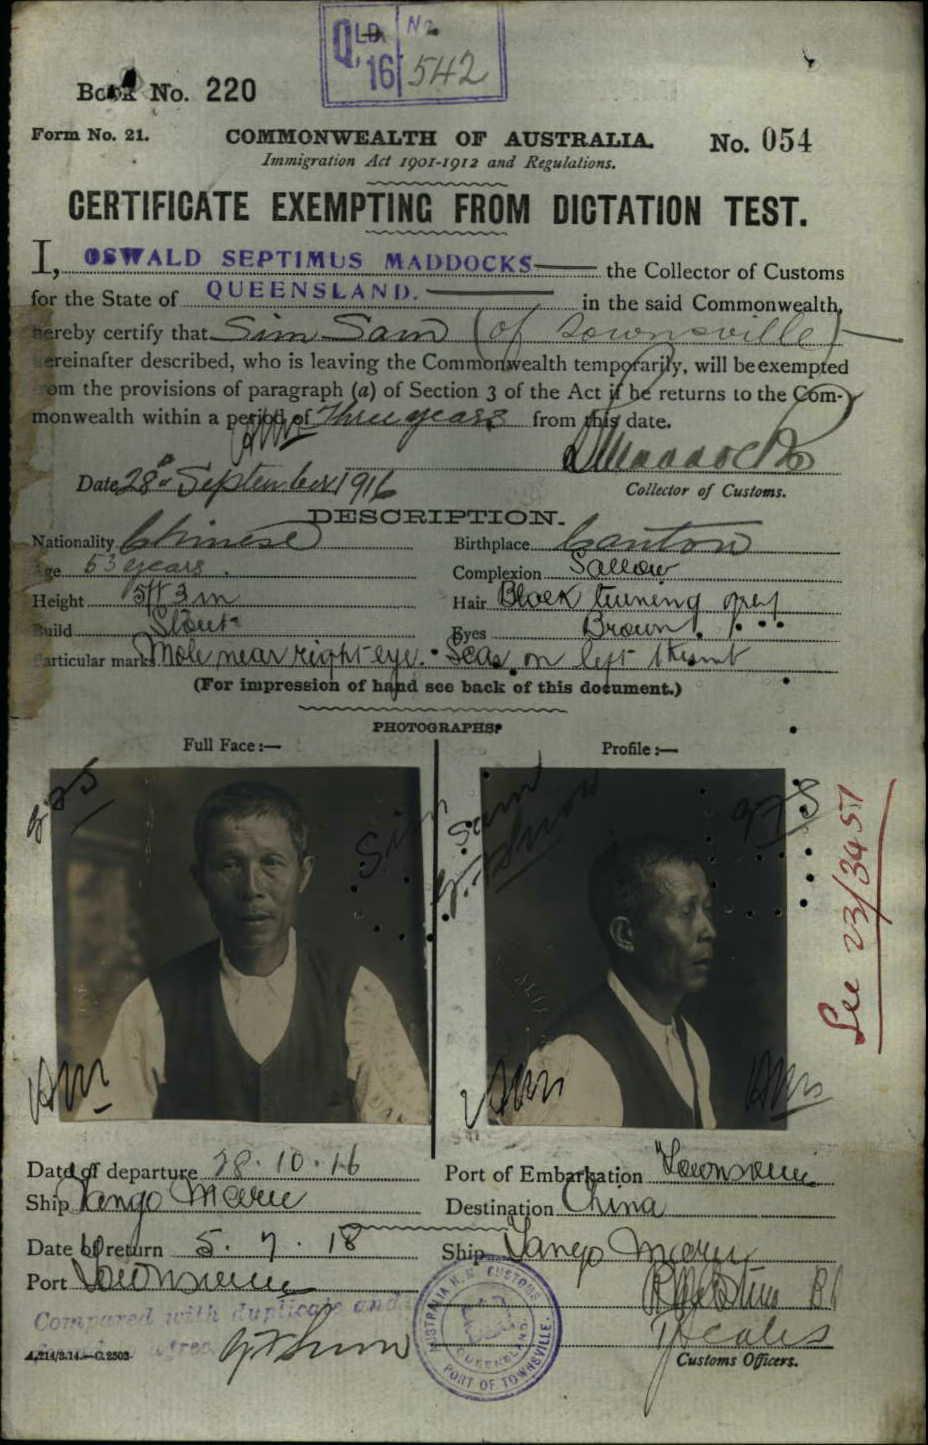 QLD. No.
16 542
Book No. 220
Form No. 21. COMMONWEALTH OF AUSTRALIA. No. 054
Immigration Act 1901-1912 and Regulations.
CERTIFICATE EXEMPTING FROM DICTATION TEST.
I, OSWALD SEPTIMUS MADDOCKS the Collector of Customs
for the State of QUEENSLAND. in the said Commonwealth,
hereby certify that Sim Sam (of Townsville)
hereinafter described, who is leaving the Commonwealth temporarily, will be exempted
from the provisions of paragraph (a) of Section 3 of the Act if he returns to the Com-
monwealth within a period of Three years from this date.
OSMaddocks
Date 28th September 1916 Collector of Customs.
DESCRIPTION.
Nationality Chinese Birthplace Canton
Age 53 years. Complexion Sallow
Height 5ft 3in Hair Black turning grey
Build Stout Eyes Brown.
Particular marks Mole near right eye. Scar on left thumb
(For impression of hand see back of this document.)
PHOTOGRAPHS.
Full Face :— Profile :—
Sim Sam
See 23/3451
Date of departure 28.10.16 Port of Embarkation Townsville
Ship Tango Maru Destination China
Date of return 5.7.18 Ship Tango Maru
Port Townsville
Compared with duplicate and
AUSTRALIA H.M. CUSTOMS
QUEENSLAND.
PORT OF TOWNSVILLE.
A.214/3.14.—C.2503. Customs Officers.